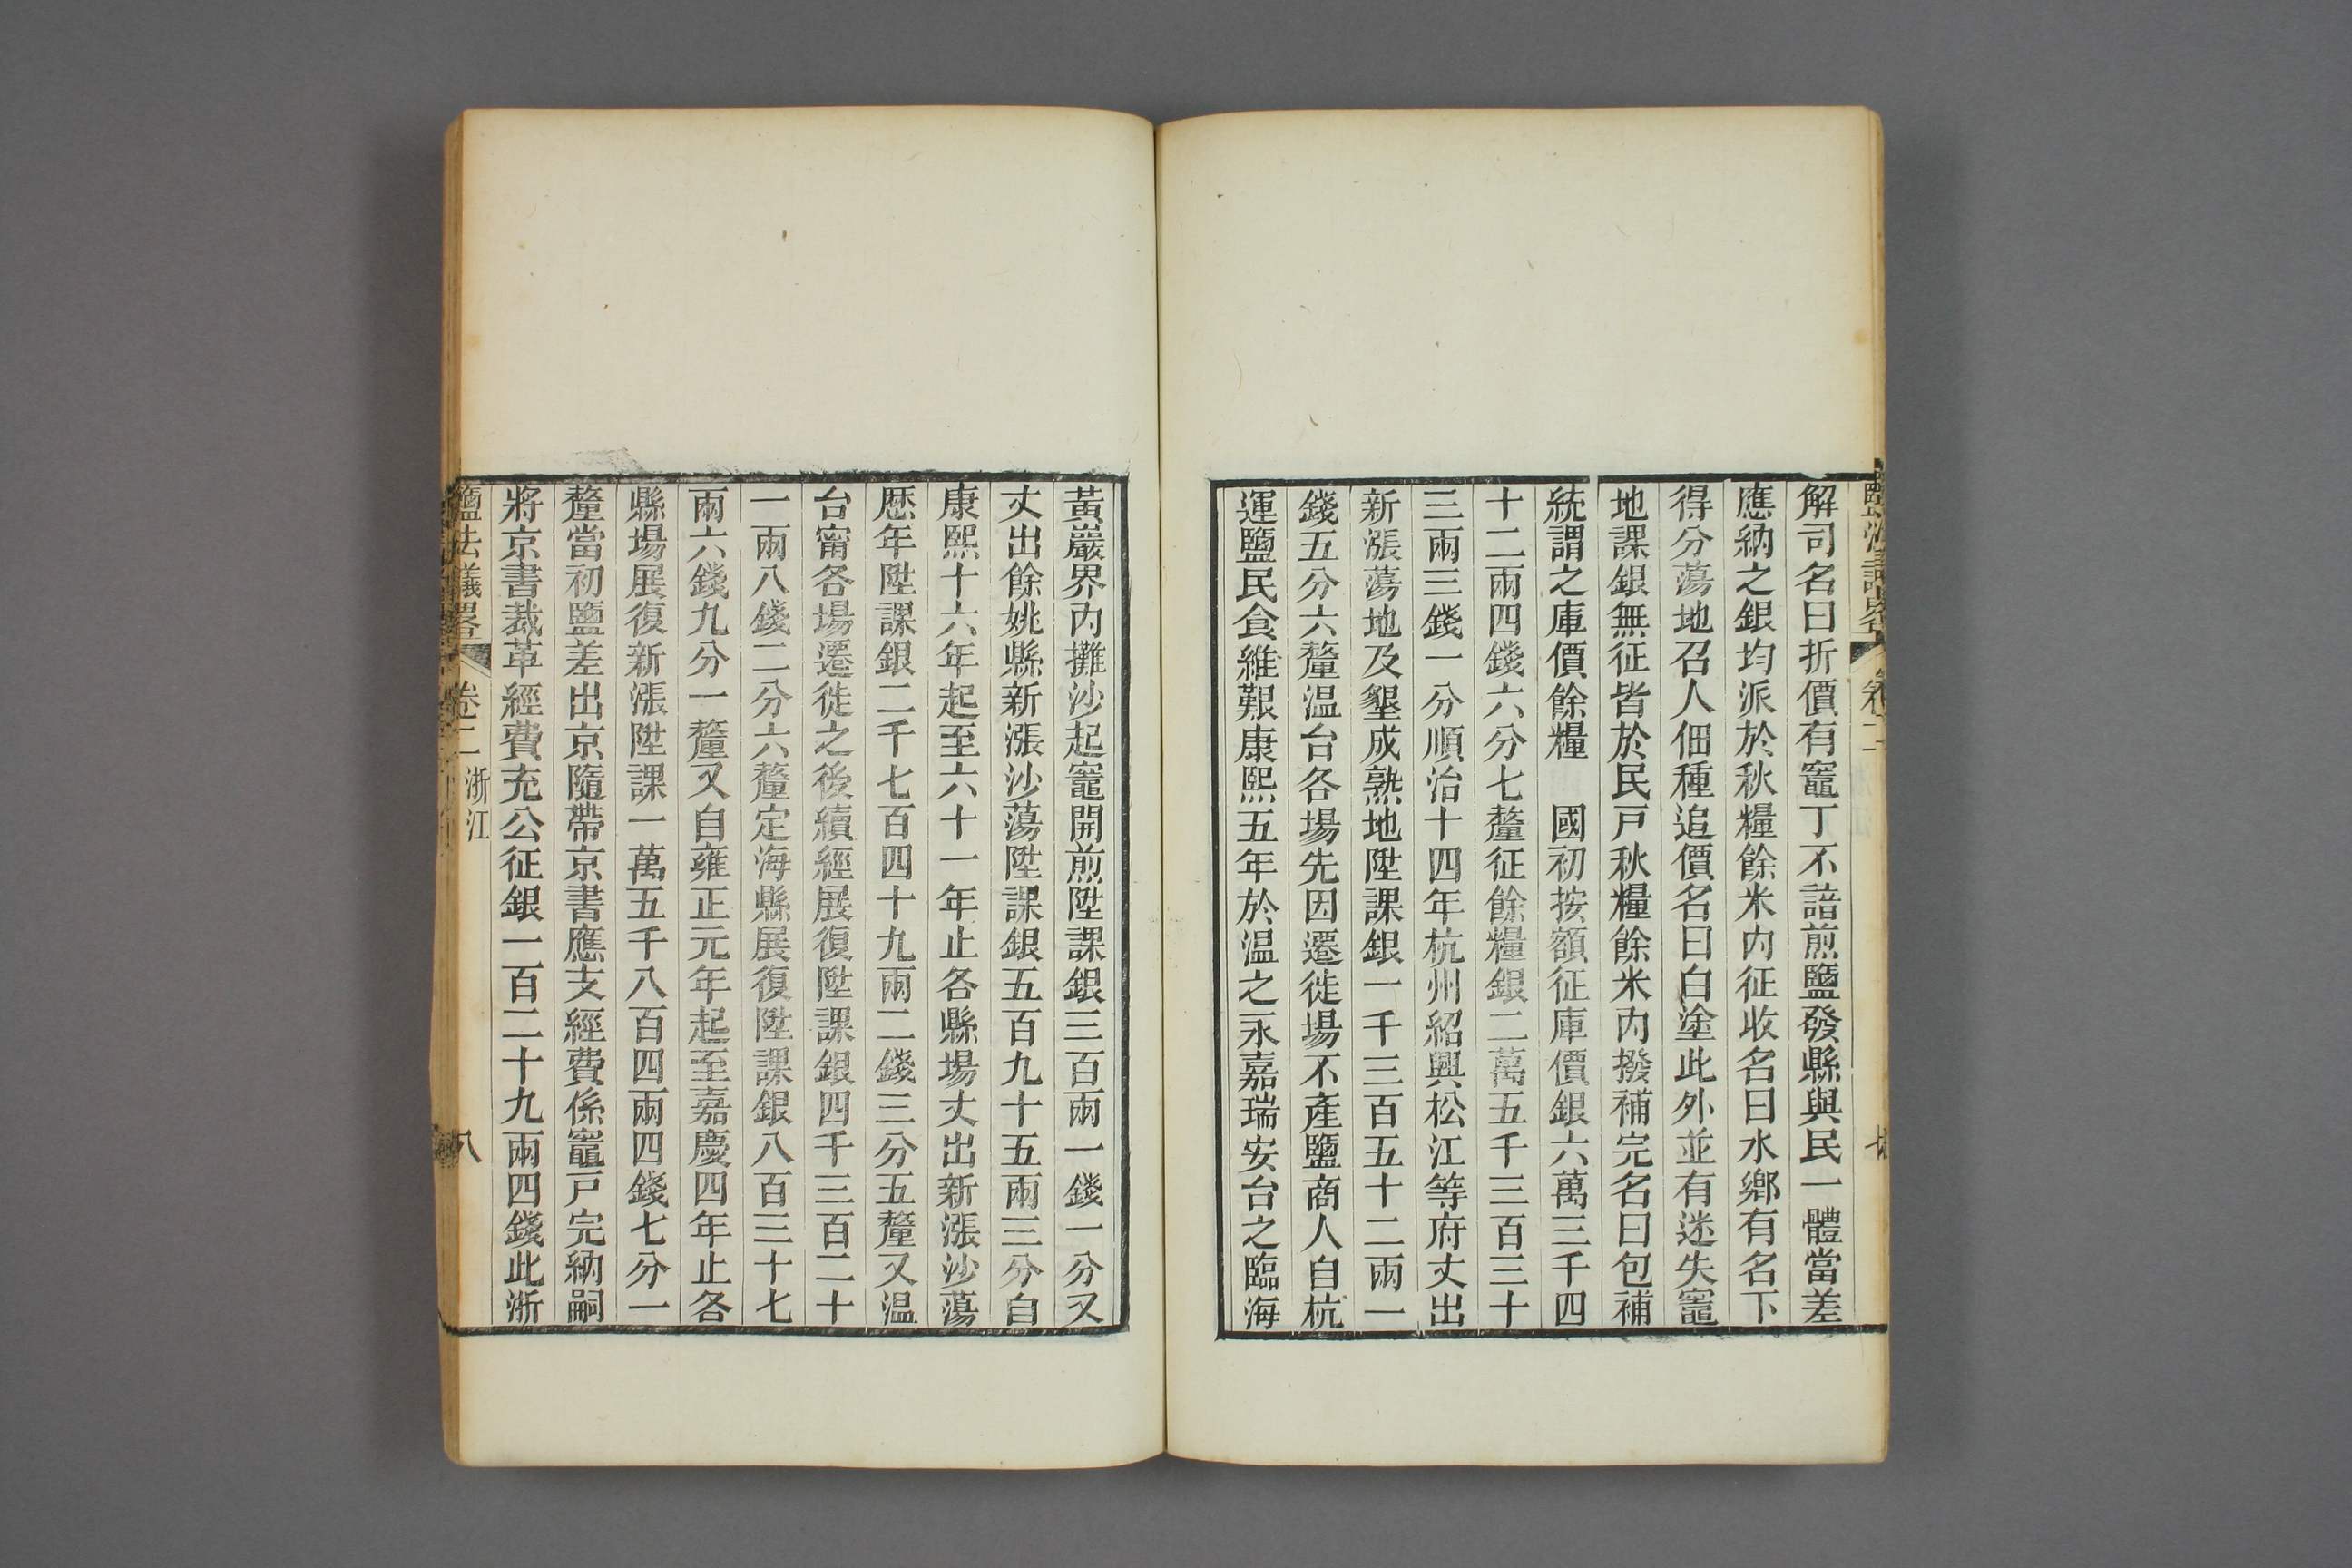 解司名曰折價有竈丁不諳煎鹽發縣與民一體當差
應納之銀均派於秋糧餘米内征收名曰水鄉有名下
得分蕩地召人佃種追價名曰白塗此外並有迷失竈
地課銀無征皆於民戸秋糧餘米内撥補完名曰包補
統謂之庫價餘糧　國初按額征庫價銀六萬三千四
十二兩四錢六分七釐征餘糧銀二萬五千三百三十
三兩三錢一分順治十四年杭州紹興松江等府丈出
新漲蕩地及墾成熟地陞課銀一千三百五十二兩一
錢五分六釐温台各場先因遷徙場不產鹽商人自杭
運鹽民食維艱康熙五年於温之永嘉瑞安台之臨海
黃巖界内攤沙起竈開煎陞課銀三百兩一錢一分又
丈出餘姚縣新漲沙蕩陞課銀五百九十五兩三分自
康熙十六年起至六十一年止各縣場丈出新漲沙蕩
歷年陞課銀二千七百四十九兩二錢三分五釐又温
台甯各場遷徙之後續經展復陞課銀四千三百二十
一兩八錢二分六釐定海縣展復陞課銀八百三十七
兩六錢九分一釐又自雍正元年起至嘉慶四年止各
縣場展復新漲陞課一萬五千八百四兩四錢七分一
釐當初鹽差出京隨帶京書應支經費係竈戸完納嗣
將京書裁革經費充公征銀一百二十九兩四錢此浙
鹽法議畧 卷二 浙江 八